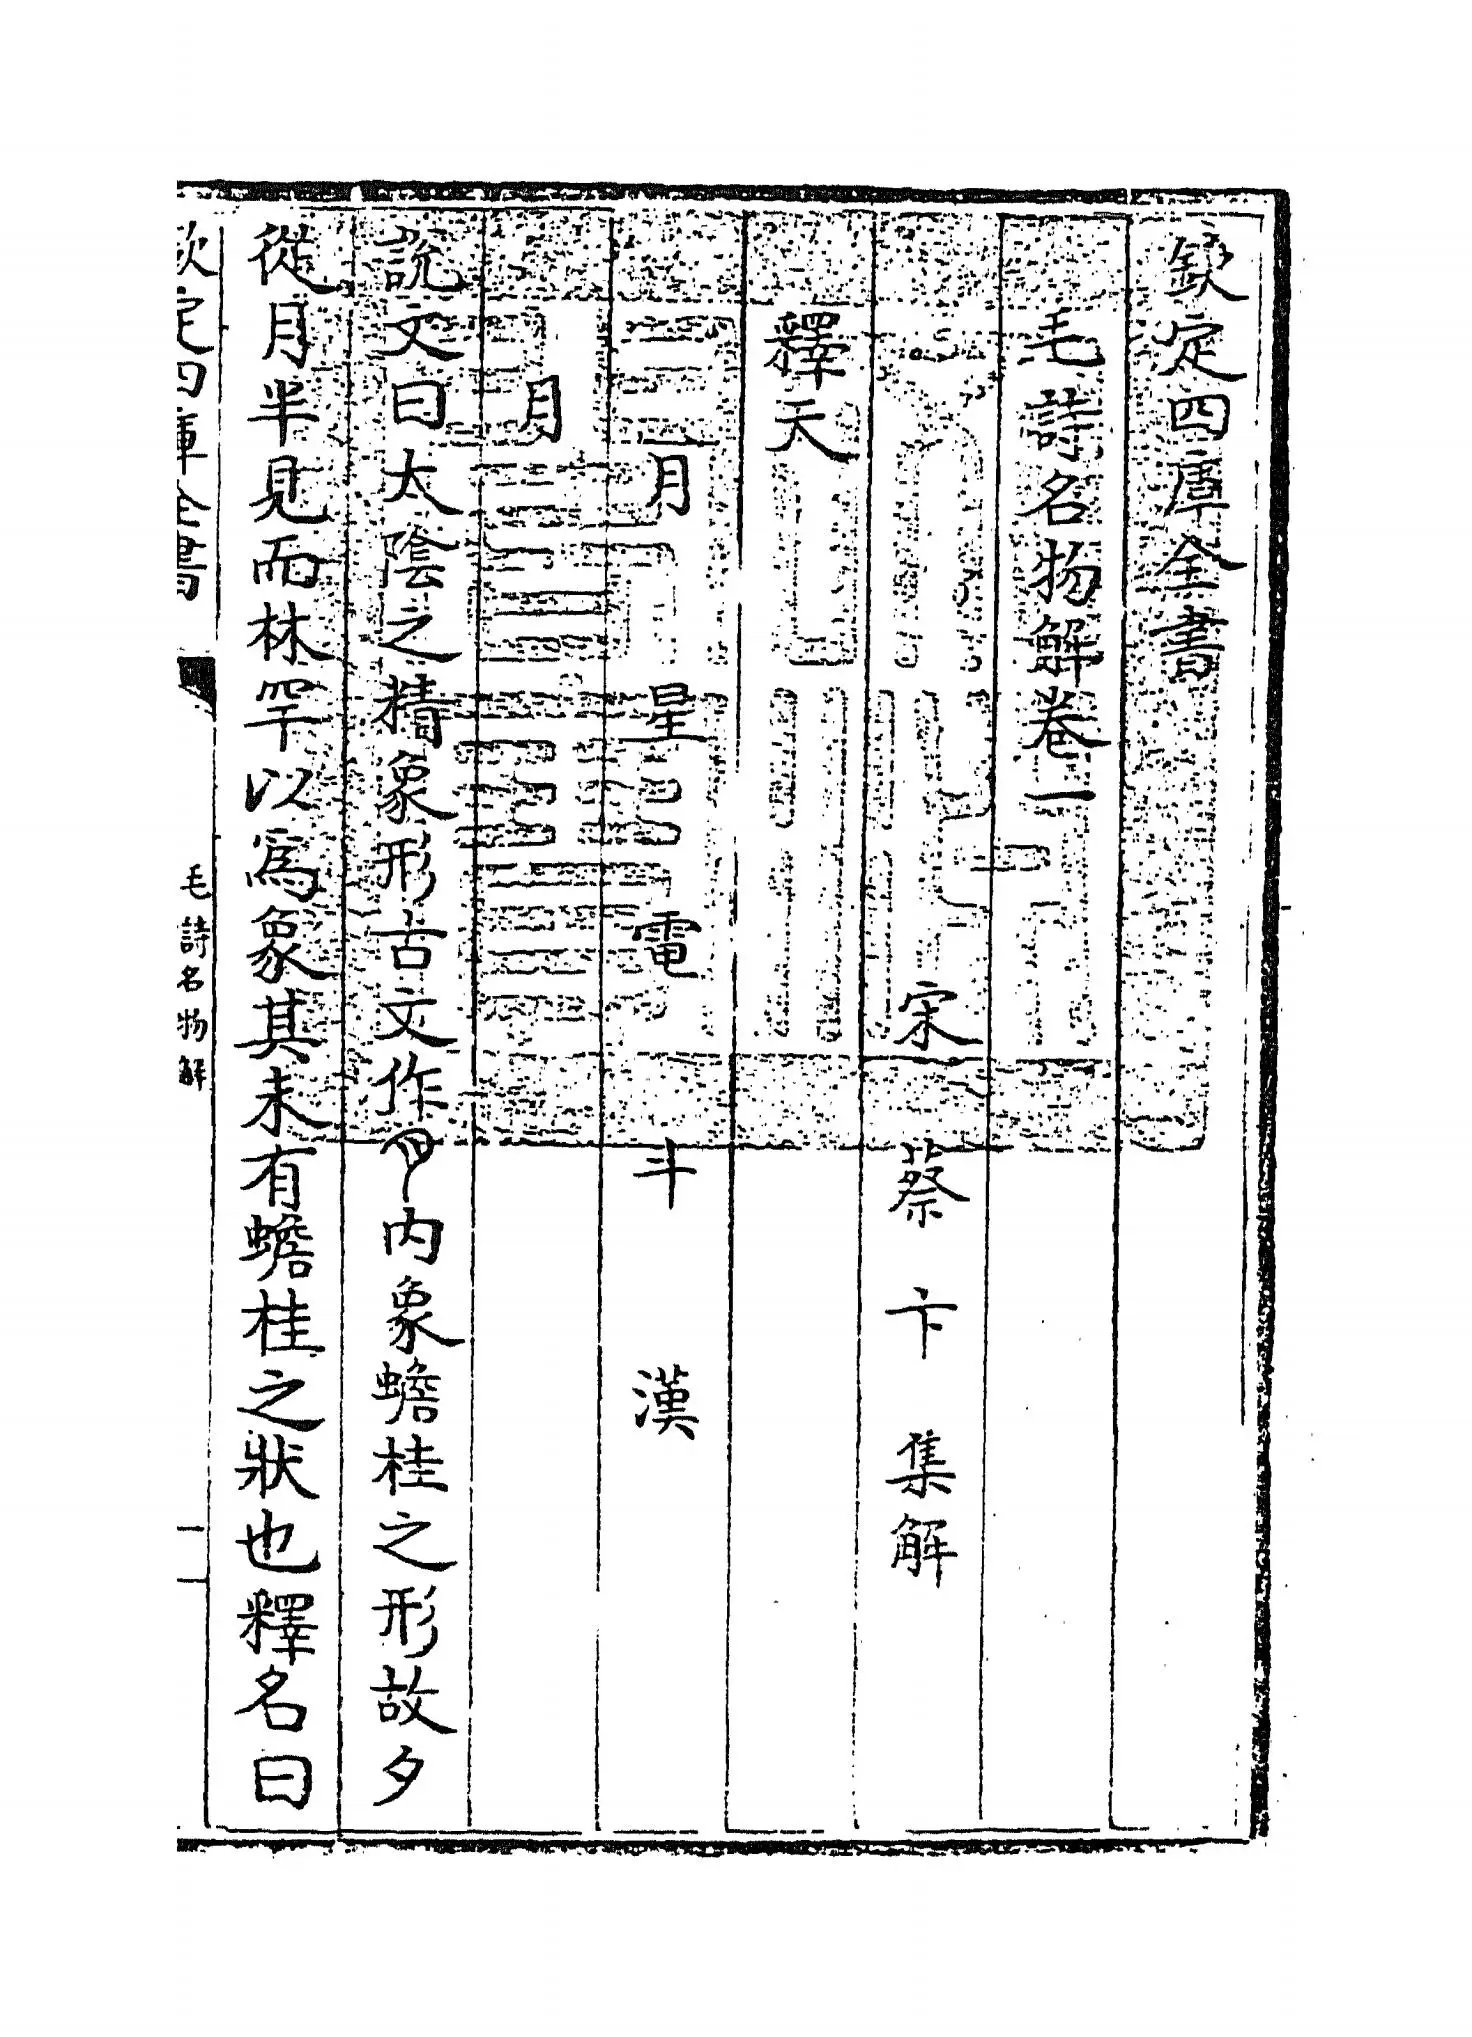 欽定四庫全書
毛詩名物解卷一
宋 蔡卞 集解
釋天
月 星 電 斗 漢
月
說文曰太陰之精象形古文作 内象蟾桂之形故夕
從月半見而林罕以為象其未有蟾桂之狀也釋名曰
欽定四庫全書
毛詩名物解
一